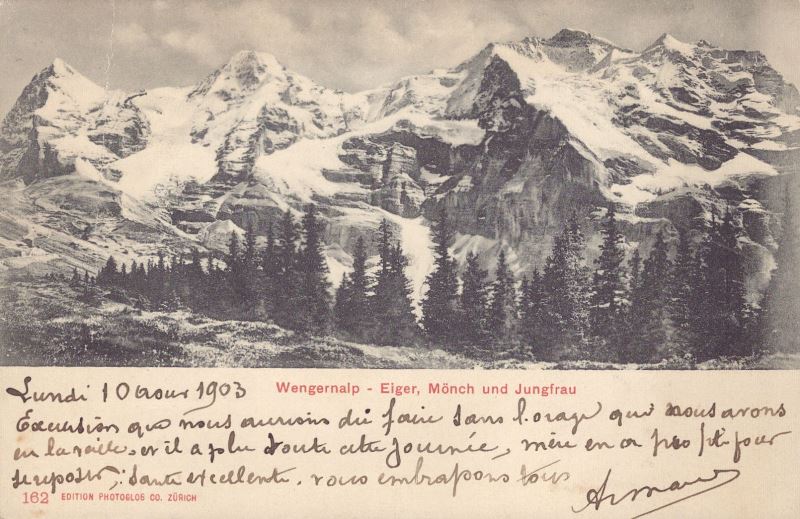 Wengernalp - Eiger, Mönch und Jungfrau
Lundi 10 Aout 1903
Excursion que nous aurions dû faire sans l'orage que nous avons
eu la veille. or il a plu toute cette journée, mère en a profité pour
se reposer, santé excellente. vous embrassons tous
Armand
162 EDITION PHOTOGLOB CO. ZÜRICH